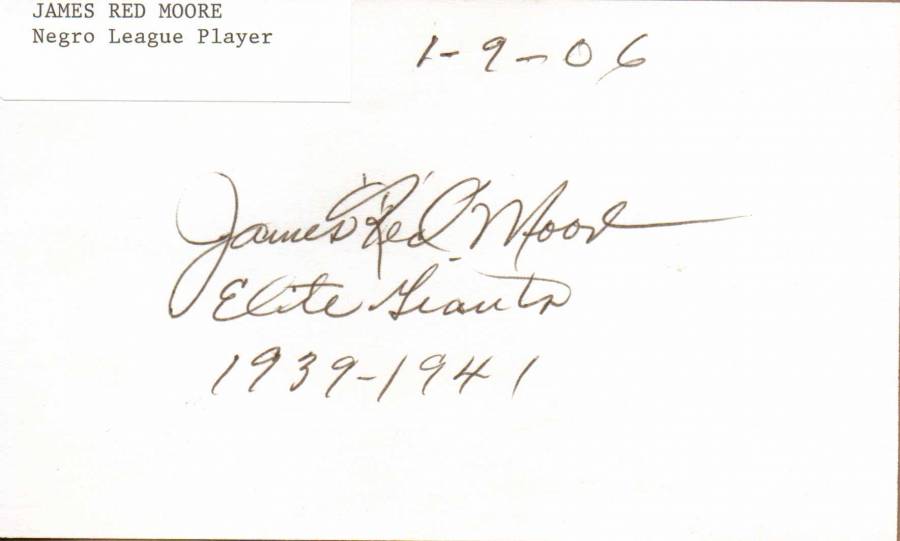 JAMES RED MOORE
Negro League Player
1-9-06
James "Red" Moore
Elite Giants
1939-1941